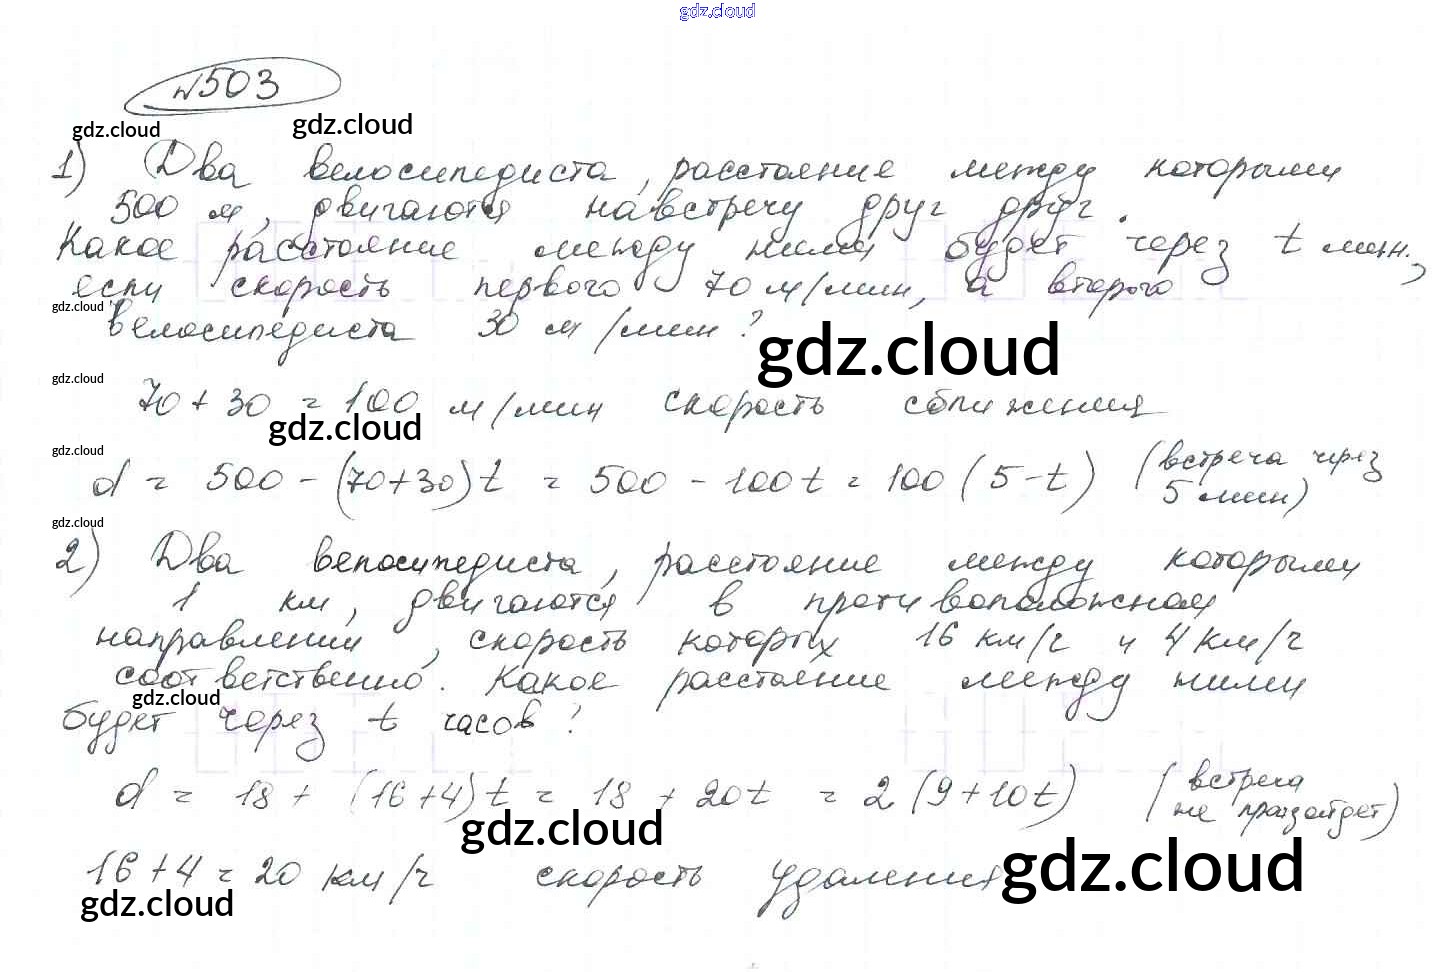 gdz.cloud
№503
gdz.cloud gdz.cloud
1) Два велосипедиста, расстояние между которыми
500 м, двигаются навстречу друг другу.
Какое расстояние между ними будет через t мин.,
если скорость первого 70 м/мин, а второго
gdz.cloud
велосипедиста 30 м/мин?
gdz.cloud
gdz.cloud
70 + 30 = 100 м/мин скорость сближения
gdz.cloud
gdz.cloud
d = 500 - (70+30)t = 500 - 100t = 100 (5-t) (встреча через
5 мин)
gdz.cloud
2) Два велосипедиста, расстояние между которыми
1 км, двигаются в противоположном
направлении, скорость которых 16 км/ч и 4 км/ч
соответственно. Какое расстояние между ними
gdz.cloud
будет через t часов?
d = 18 + (16+4)t = 18 + 20t = 2 (9+10t) (встреча
не произойдет)
gdz.cloud
gdz.cloud
16+4 = 20 км/ч скорость удаления
gdz.cloud